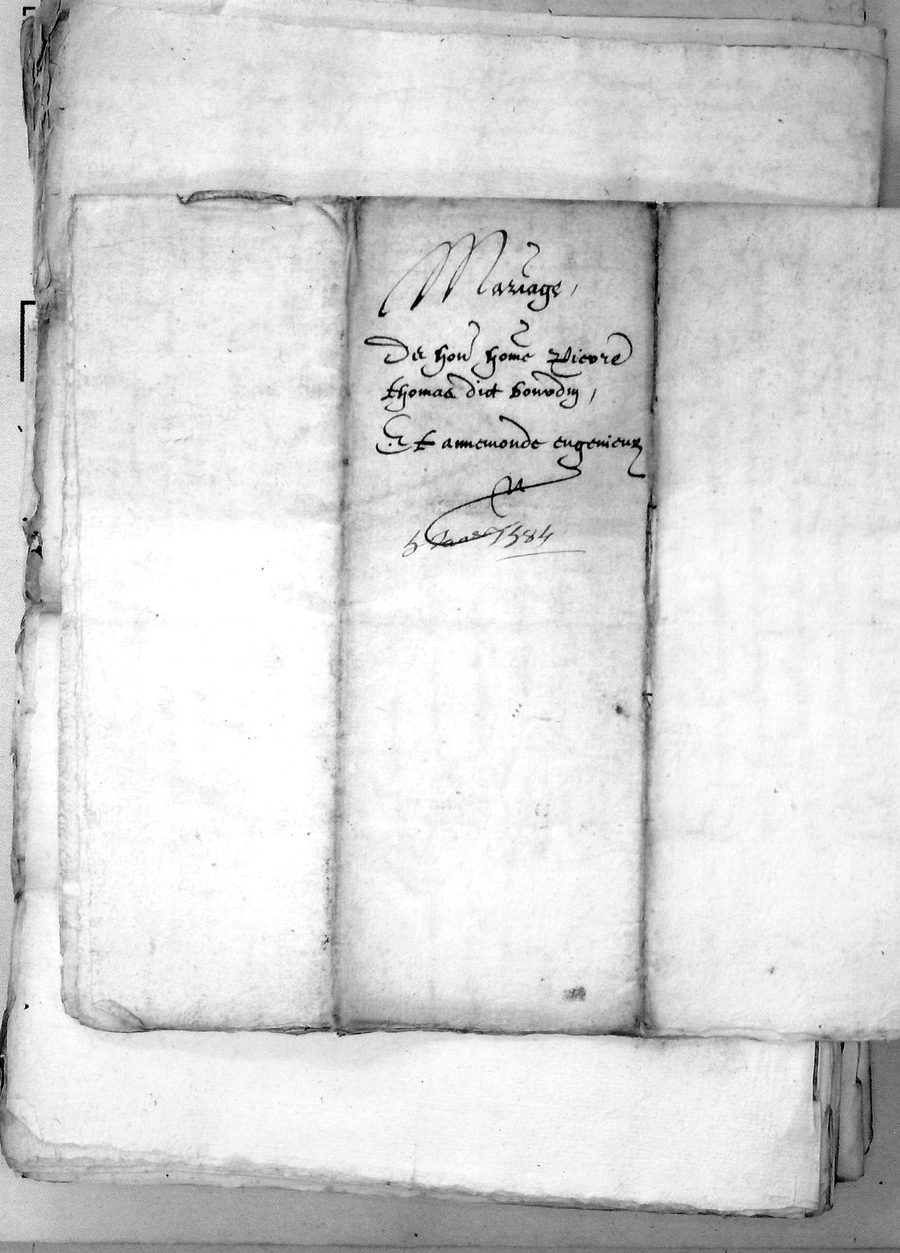 Mariage,
De hon home Pierre
thomas dict bourdin,
Et annemonde eugenieux
5 1584